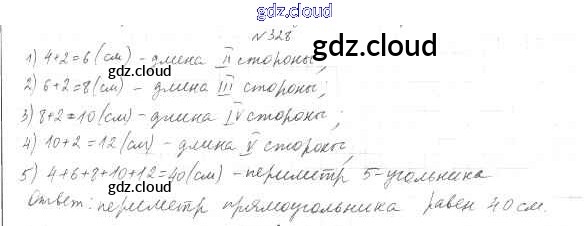 gdz.cloud
№328
gdz.cloud
1) 4+2=6(см) - длина II стороны;
gdz.cloud
2) 6+2=8(см) - длина III стороны;
3) 8+2=10(см) - длина IV стороны;
gdz.cloud
4) 10+2=12(см) - длина V стороны;
gdz.cloud
5) 4+6+8+10+12=40(см) - периметр 5-угольника
gdz.cloud
Ответ: периметр прямоугольника равен 40см.